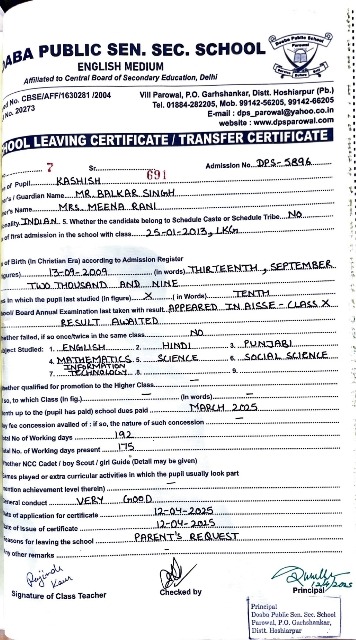 Doaba Public School
Parowal
OABA PUBLIC SEN. SEC. SCHOOL
ENGLISH MEDIUM
Affiliated to Central Board of Secondary Education, Delhi
ed No. CBSE/AFF/1630281 /2004
No. 20273
Vill Parowal, P.O. Garhshankar, Distt. Hoshiarpur (Pb.)
Tel. 01884-282205, Mob. 99142-56205, 99142-66205
E-mail : dps_parowal@yahoo.co.in
website : www.dpsparowal.com
HOOL LEAVING CERTIFICATE / TRANSFER CERTIFICATE
7 Sr. 691 Admission No. DPS-5896
of Pupil KASHISH
's / Guardian Name MR. BALKAR SINGH
er's Name MRS. MEENA RANI
nality INDIAN 5. Whether the candidate belong to Schedule Caste or Schedule Tribe NO
of first admission in the school with class 25-01-2013, LKG
of Birth (In Christian Era) according to Admission Register
gures) 13-09-2009 (in words) THIRTEENTH, SEPTEMBER
TWO THOUSAND AND NINE
ss in which the pupil last studied (In figure) X ( in Words) TENTH
ool/ Board Annual Examination last taken with result APPEARED IN AISSE - CLASS X
RESULT AWAITED
ether failed, if so once/twice in the same class NO
bject Studied: 1. ENGLISH 2. HINDI 3. PUNJABI
4. MATHEMATICS 5. SCIENCE 6. SOCIAL SCIENCE
7. INFORMATION TECHNOLOGY 8. - 9. -
ether qualified for promotion to the Higher Class -
so, to which Class (in fig.) - (In words) -
nth up to the (pupil has paid) school dues paid MARCH 2025
y fee concession availed of : if so, the nature of such concession -
tal No of Working days 192
tal No. of Working days present 175
hether NCC Cadet / boy Scout / girl Guide (Detail may be given)
mes played or extra curricular activities in which the pupil usually look part
ention achievement level therein) -
eneral conduct VERY GOOD
ate of application for certificate 12-04-2025
ate of issue of certificate 12-04-2025
easons for leaving the school PARENT'S REQUEST
ny other remarks -
Rajinder Kaur
12/4/2025
Signature of Class Teacher Checked by Principal
Principal
Doaba Public Sen. Sec. School
Parowal, P.O. Garhshankar,
Distt. Hoshiarpur